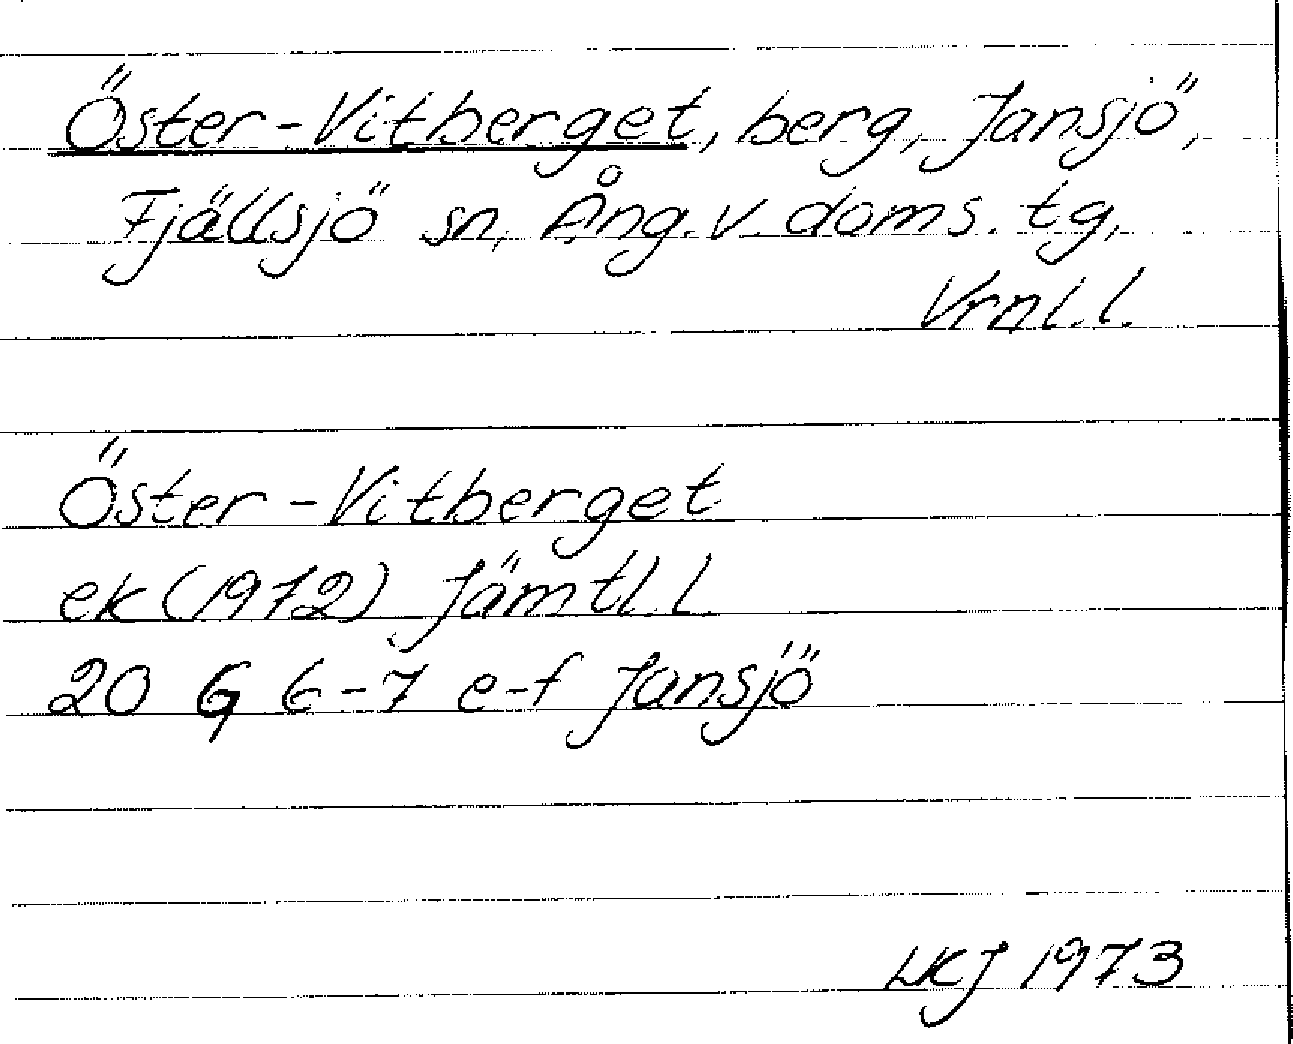 Öster-Vitberget, berg, Jansjö,
Fjällsjö sn, Ång. v. doms. tg,
Vrnl. l.
Öster-Vitberget
ek (1972) Jämtl. l.
20 G 6-7 e-f Jansjö
LKJ 1973